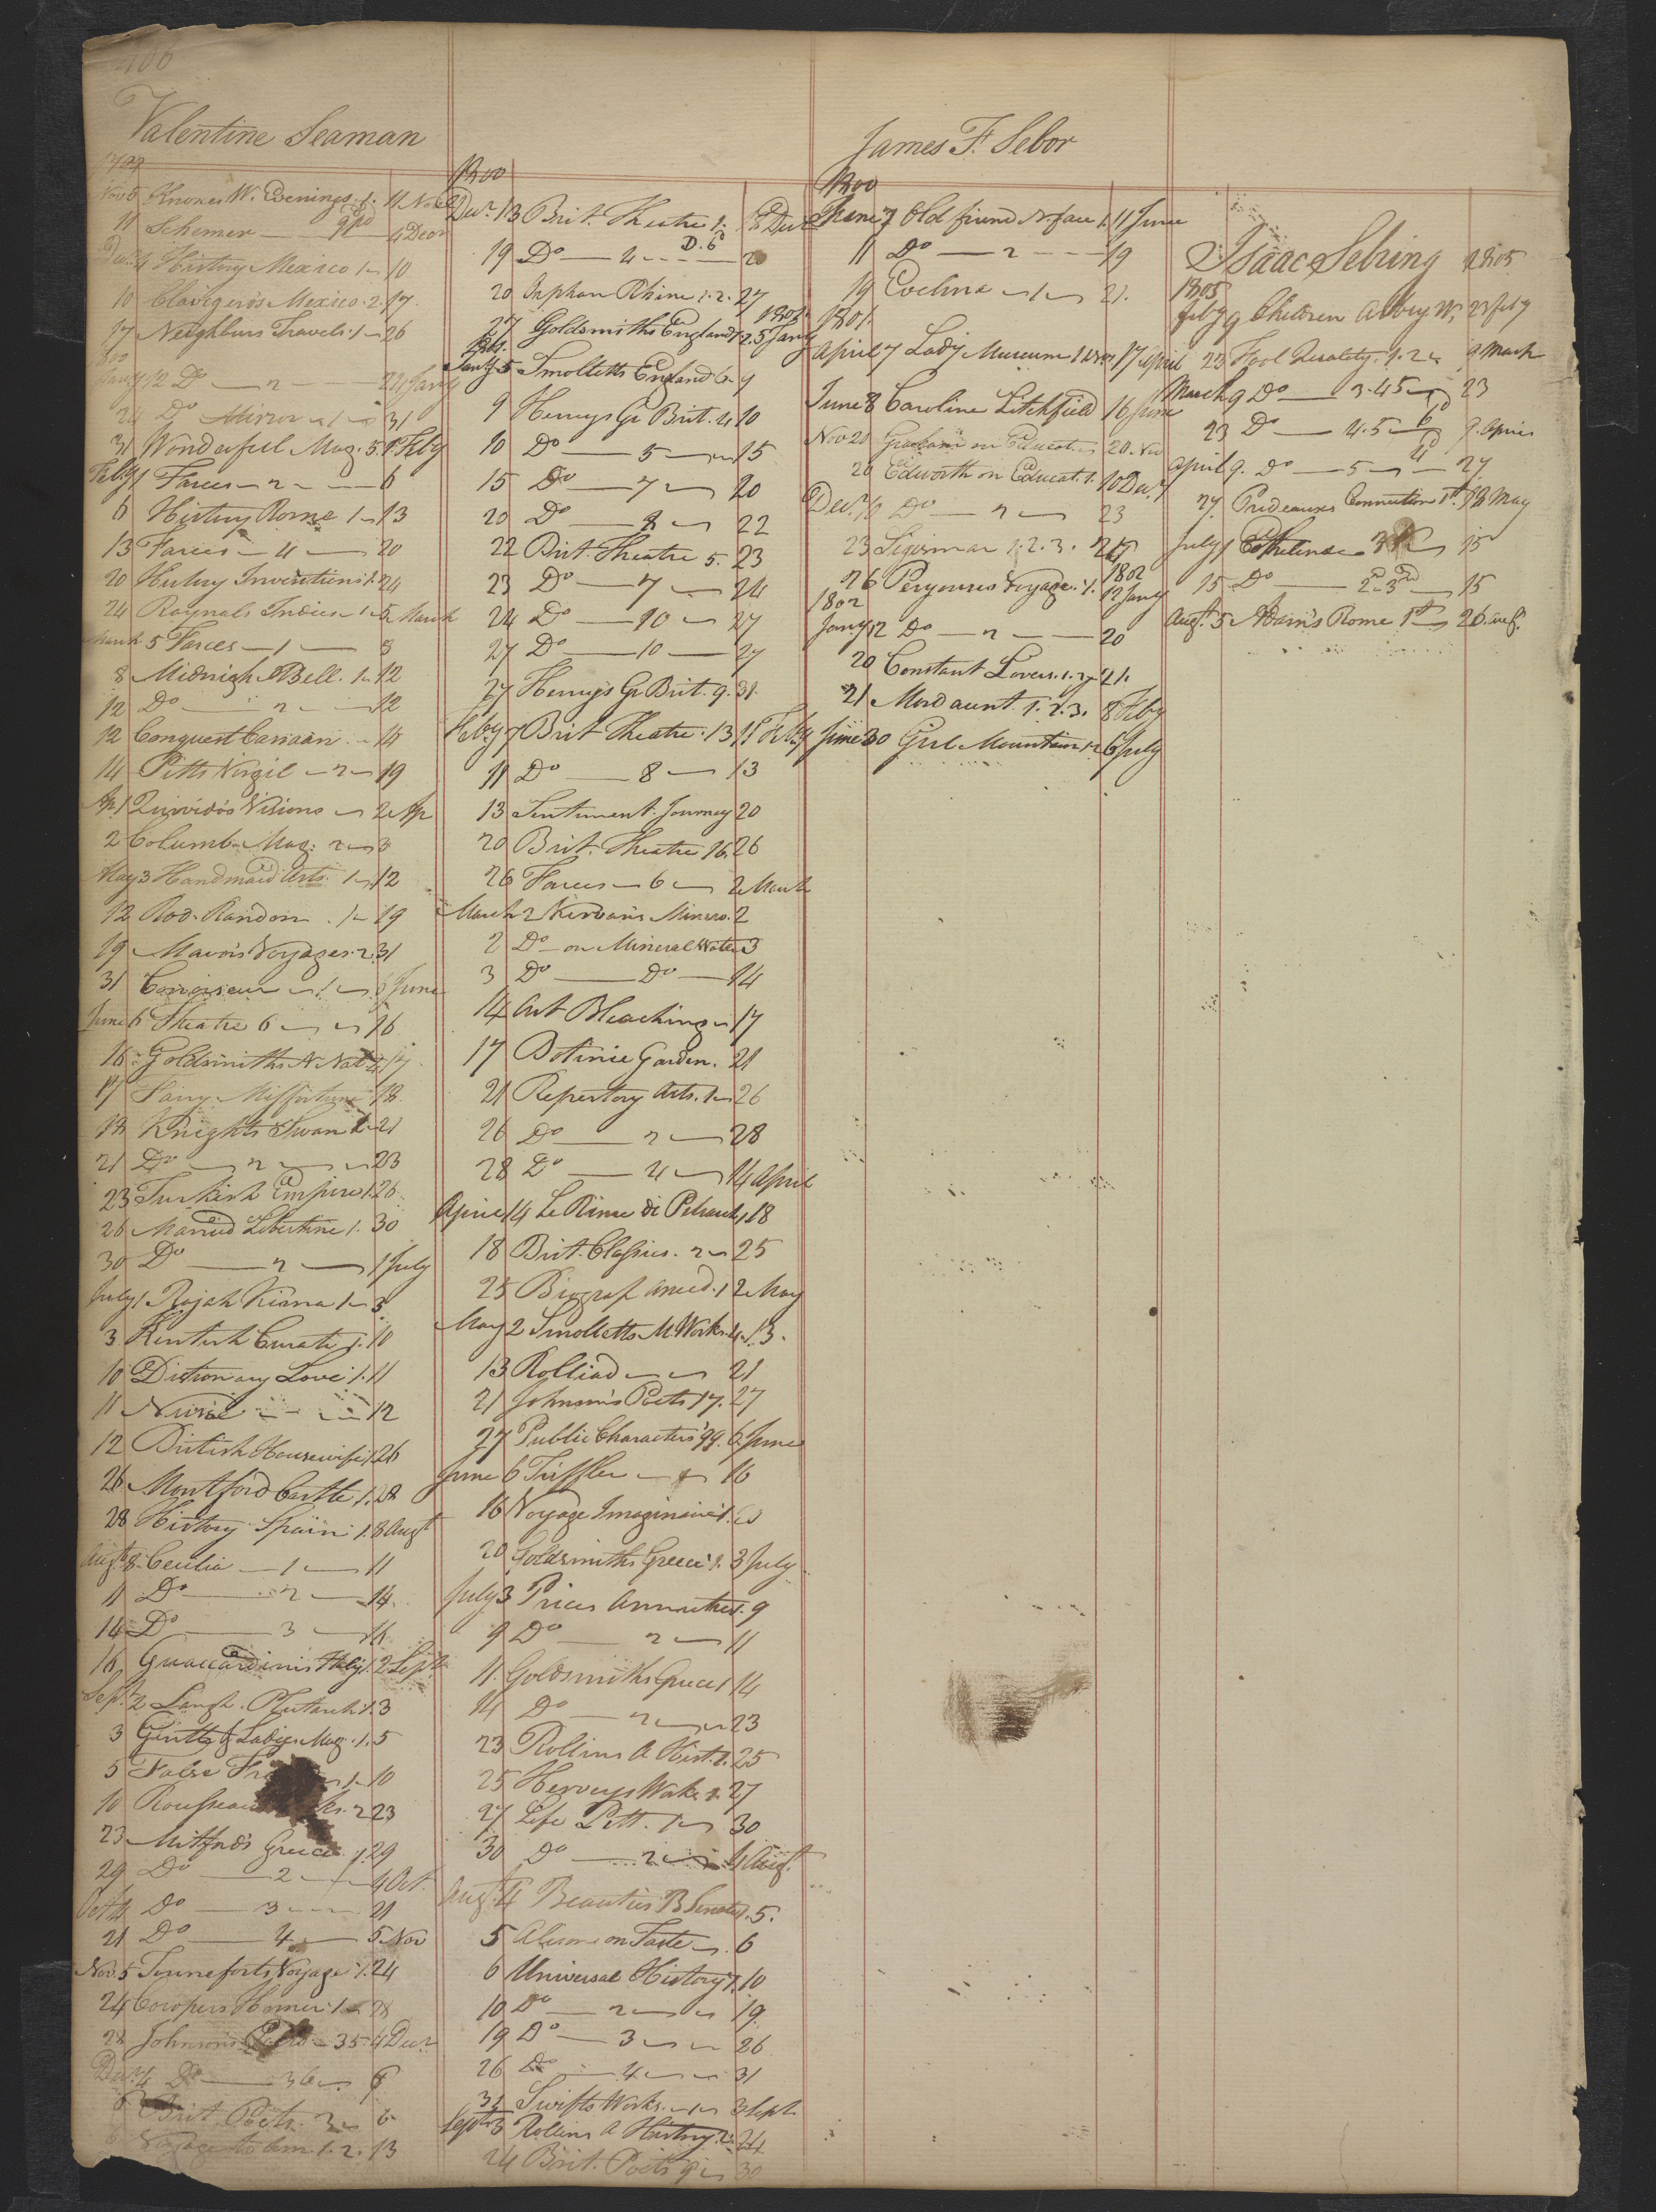 406
Valentine Seaman
1799
Nov 5 Knoxes W. Evenings. 1. 11 Nov
11 Schemer 4 Decr
Decr 4 History Mexico 1 10
10 Clavigero's Mexico. 2. 17.
17 Neighburs Travels. 1 26
Jany 12 Do 2 24 Jany
24 Do Mirror 1 31
31 Wonderful Mag. 5. 1 Feby
Feby 1 Farces 2 6
6 History Rome 1 13
13 Farces 4 20
20 History Inventions 1. 24
24 Raynals Indies 1 5 March
March 5 Farces 1 8
8 Midnight Bell. 1 12
12 Do 2 12
12 Conquest Canaan 14
14 Pitts Virgil 2 19
Ap. 1 Quivido's Visions 2 Ap
2 Columb. Mag. 2 3
May 3 Handmaid Arts. 1 12
12 Rod. Random. 1 19
19 Mavors Voyages. 2. 31
31 Conoiseur 1 6 June
June 6 Theatre 6 16
16 Goldsmiths N. Nat 4 17
17 Fairy Misfortune 18
18 Knights Swan 1 21
21 Do 2 23
23 Turkish Empire 1. 26
26 Married Libertine 1. 30
30 Do 2 1 July
July 1 Rajah Kisna 1 3
3 Kentish Curate 1. 10
10 Dictionary Love 1. 11
11 Nurse 12
12 British Housewife 1. 26
26 Montford Castle 1. 28
28 History Spain 1. 8 Augt
Augt 8 Cecilia 1 11
11 Do 2 14
14 Do 3 16
16 Guaccardinis Italy 1. 2 Sept
Sept 2 Langh. Plutarch 1. 3
3 Gentle & Ladies Mag. 1. 5
5 False 1 10
10 Rousseau 2 23
23 Mitford's Greece. 1. 29
29 Do 2 4 Oct.
Oct 4 Do 3 21
21 Do 4 5 Nov
Nov. 5 Tourneforts Voyage 1. 24
24 Cowpers Homer. 1 28
28 Johnsons Poets 35. 4 Decr
Decr 4 Do 36 6
6 Brit. Poets. 3 6
1. 2. 13
1800
Decr. 13 Brit. Theatre 1. 18 Decr
19 Do 4 D. 6d 20
20 Orphan Rhine 1. 2. 27
27 Goldsmiths England 1. 2. 5 Jany 1801
1801.
Jany 5 Smolletts England 6. 9
9 Henrys Gr Brit. 4 10
10 Do 5 15
15 Do 7 20
20 Do 8 22
22 Brit. Theatre 5. 23
23 Do 7 24
24 Do 10 27
27 Do 10 27
27 Henrys Gr Brit. 9. 31.
Feby 7 Brit Theatre. 13 11 Feby
11 Do 8 13
13 Sentiment. Journey 20
20 Brit. Theatre 16. 26
26 Farces 6 2 March
March 2 Kirwans Minera. 2
2 Do on Mineral Water 3
3 Do Do 14
14 Art Bleaching 17
17 Botinic Garden. 21
21 Repertory Arts. 1 26
26 Do 2 28
28 Do 4 14 April
April 14 Le Rime di Petrarch 1 18
18 Brit. Classics. 2 25
25 Biograf Anecd. 1 2 May
May 2 Smolletts M. Works. 4. 13.
13 Rolliad 21
21 Johnson's Poets 17. 27
27 Public Characters 99. 6 June
June 6 Triffler 16
16 Voyage Imaginaire 1. 20
20 Goldsmiths Greece 1. 3 July
July 3 Prices Annuities 1. 9
9 Do 2 11
11 Goldsmiths Greece 1 14
14 Do 2 23
23 Rollins A Hist. 1. 25
25 Herveys Works 2. 27
27 Life Pitt. 1 30
30 Do 2 4 Augt.
Augt. 4 Beauties B Senate 1. 5.
5 Alison on Taste 6
6 Universal History 1. 10
10 Do 2 19
19 Do 3 26
26 Do 4 31
31 Swifts Works. 1 3 Sept
Sept 3 Rollins A History 2. 24
24 Brit. Poets 9 30
James F. Sebor
1800
June 7 Old friend N. face 1. 11 June
11 Do 2 19
19 Evelina 1 21.
1801.
April 7 Lady Museum 1 17 April
June 8 Caroline Litchfield 16 June
Nov 20 Graham on Educat. 20. Nov
20 Edworth on Educat. 1. 10 Decr
Decr. 10 Do 2 23
23 Sigismar 1. 2. 3. 26
26 Peyrouses Voyage. 1. 12 Jany 1802
1802
Jany 12 Do 2 20
20 Constant Lover. 1. 2 21.
21 Mordaunt. 1. 2. 3. 8 Feby
June 30 Girl Mountain 1. 2 6 July
Isaac Sebring 1805
1805
Feby 9 Children Abbey W. 23 Feby
23 Fool Quality. 1. 2 9 March
March 9 Do 3. 4 5 23
23 Do 4. 5 6d 9. April
April 9. Do 5 4d 27
27 Prideauxs Connection 1st. 18 May
July 1 Ethelinde 15
15 Do 2d 3rd 15
Augt. 5 Adam's Rome 1st 26. Augt.